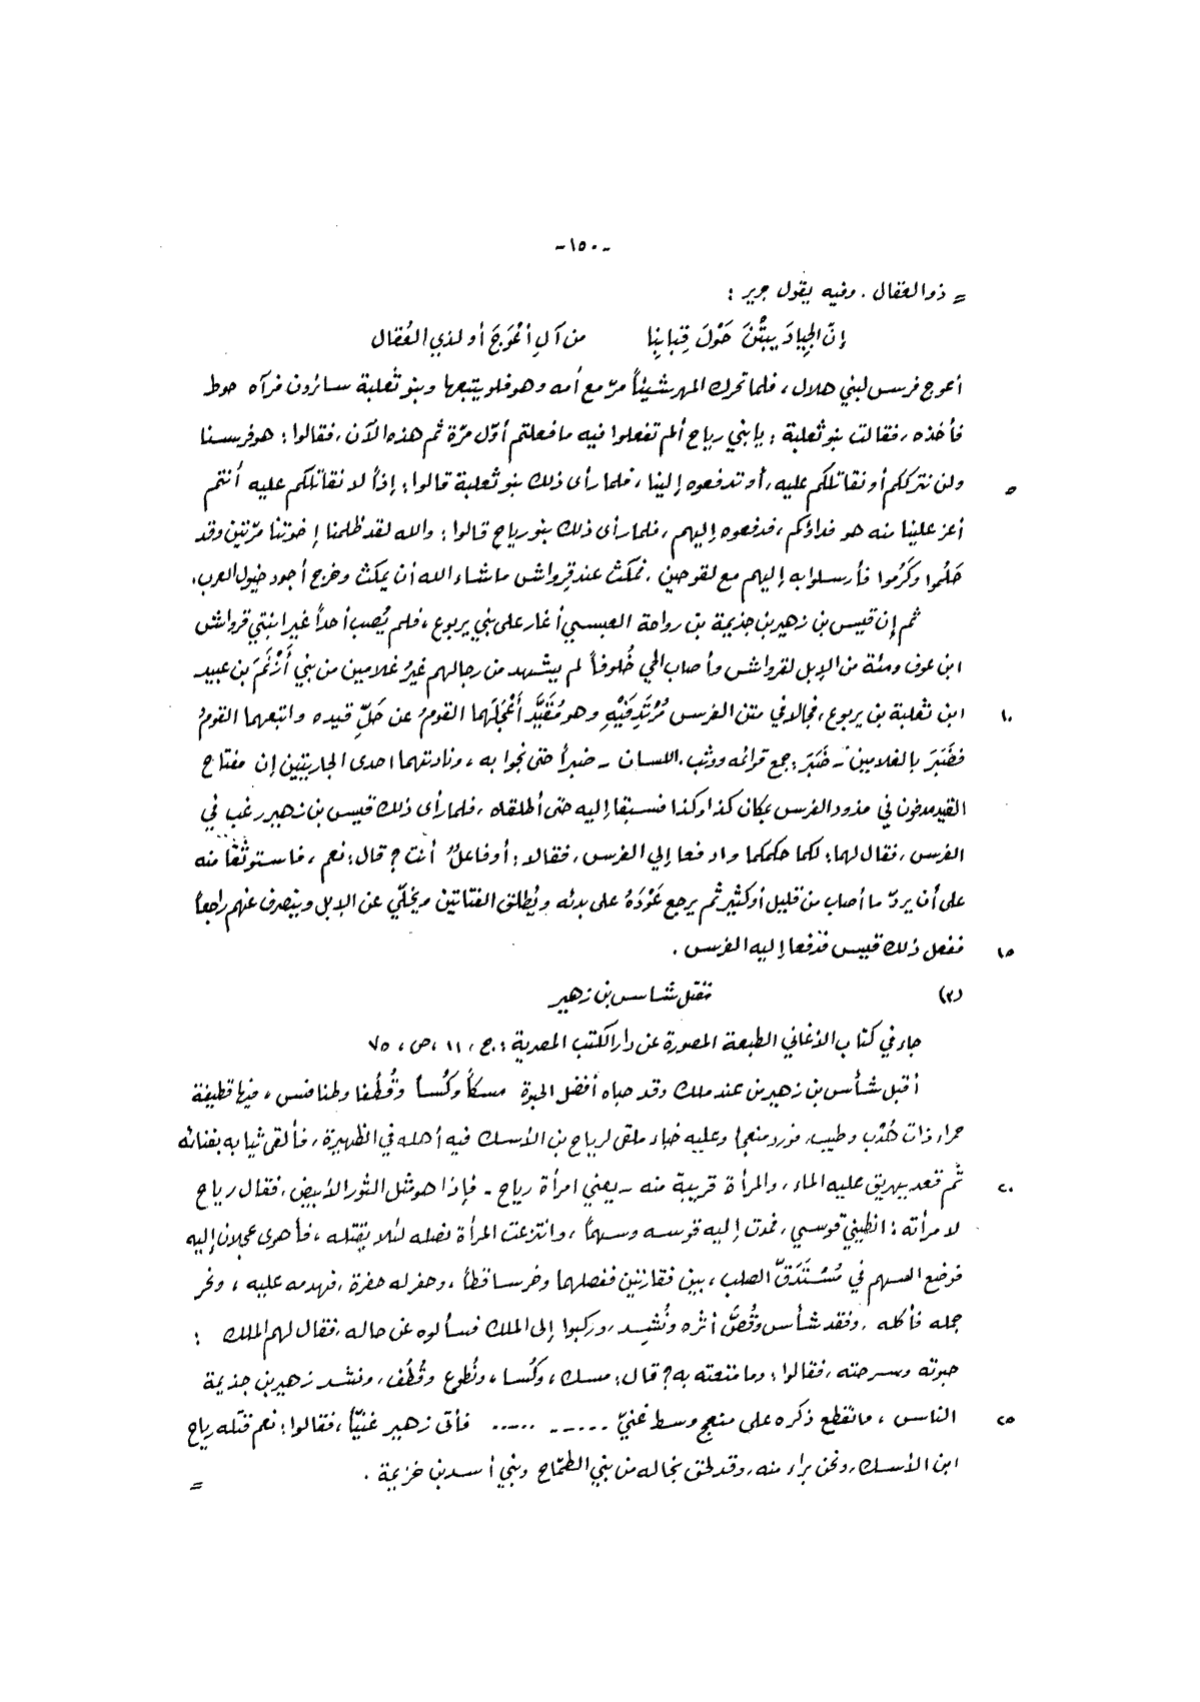 -١٥٠-
= ذو العقال . وفيه يقول جرير :
إنّ الجِيادَ يبِتْنَ حَوْلَ قِبابِنِا من آلِ أعْوَجَ أو لذي العُقال
أعوج فرس لبني هلال ، فلما تحرك المهر شيئاً مرّ مع أمه وهو فلو يتبعها وبنو ثعلبة سائرون فرآه حوط
فأخذه ، فقالت بنو ثعلبة : يابني رياح ألم تفعلوا فيه مافعلتم أوّل مرّة ثم هذه الآن ، فقالوا : هو فرسنا
ولن نترككم أو نقاتلكم عليه ، أو تدفعوه إلينا ، فلما رأى ذلك بنو ثعلبة قالوا : إذاً لا نقاتلكم عليه أنتم ٥
أعز علينا منه هو فداؤكم ، فدفعوه إليهم ، فلما رأى ذلك بنو رياح قالوا : والله لقد ظلمنا إخوتنا مرّتين وقد
حَلُموا وكَرُموا فأرسلوا به إليهم مع لقوحين ، فمكث عند قرواش ماشاء الله أن يمكث وخرج أجود خيول العرب .
ثم إن قيس بن زهير بن جذيمة بن رواحة العبسي أغار على بني يربوع ، فلم يُصب أحداً غير ابنتي قرواش
ابن عوف ومئة من الإبل لقرواش وأصاب الحي خُلوفاً لم يشهد من رجالهم غيرُ غلامين من بني أَزْنَمَ بن عبيد
ابن ثعلبة بن يربوع ، فجالا في متن الفرس مُرْتَدِفَيْهِ وهو مُقَيَّد أَعْجَلَهما القومُ عن حَلِّ قيده واتبعهما القومُ ١٠
فضَبَرَ بالغلامين - ضَبَرَ : جمع قوائمه ووثب . اللسان - ضبراً حتى نجوا به ، ونادتهما احدى الجاريتين إن مفتاح
القيد مدفون في مذود الفرس بمكان كذا وكذا فسبقا إليه حتى أطلقاه ، فلما رأى ذلك قيس بن زهير رغب في
الفرس ، فقال لهما : لكما حكمكما وادفعا إلي الفرس ، فقالا : أو فاعلٌ أنت ؟ قال : نعم ، فاستوثقا منه
على أن يردّ ما أصاب من قليل أو كثير ثم يرجع عَوْدَهُ على بدئه ويُطلق الفتاتين ويخلّي عن الإبل وينصرف عنهم راجعاً
ففعل ذلك قيس فدفعا إليه الفرس . ١٥
(٢) مقتل شاس بن زهير
جاء في كتاب الأغاني الطبعة المصورة عن دار الكتب المصرية : ج ، ١١ ، ص ، ٧٥
أقبل شأس بن زهير من عند ملك وقد حباه أفضل الحبوة مسكاً وكُساً وقُطُفا وطنافس ، فيها قطيفة
حمراء ذات هُدْب وطيب ، فورد منعجا وعليه خباء ملقى لرياح بن الأسك فيه أهله في الظهيرة ، فألقى ثيابه بفنائه
ثم قعد يهريق عليه الماء ، والمرأة قريبة منه - يعني امرأة رياح - فإذا هو مثل الثور الأبيض ، فقال رياح ٢٠
لامرأته : انطيني قوسي ، فمدت إليه قوسه وسهماً ، وانتزعت المرأة نصله لئلا يقتله ، فأهوى عجلان إليه
فوضع السهم في مُسْتَدَقّ الصلب ، بين فقارتين ففصلهما وخر ساقطاً ، وحفر له حفرة ، فهدمه عليه ، ونحر
جمله فأكله . وفقد شأس وقُصَّ أثره ونُشِد ، وركبوا إلى الملك فسألوه عن حاله ، فقال لهم الملك :
حبوته وسرحته ، فقالوا : وما متعته به ؟ قال : مسك ، وكُسا ، ونُطوع وقُطُف ، ونشد زهير بن جذيمة
الناس ، فانقطع ذكره على منعج وسط غنيّ ...... ...... فأتى زهير غنيّاً ، فقالوا : نعم قتله رياح ٢٥
ابن الأسك ، ونحن براء منه ، وقد لحق بخاله من بني الطمّاح وبني أسد بن خزيمة .
=